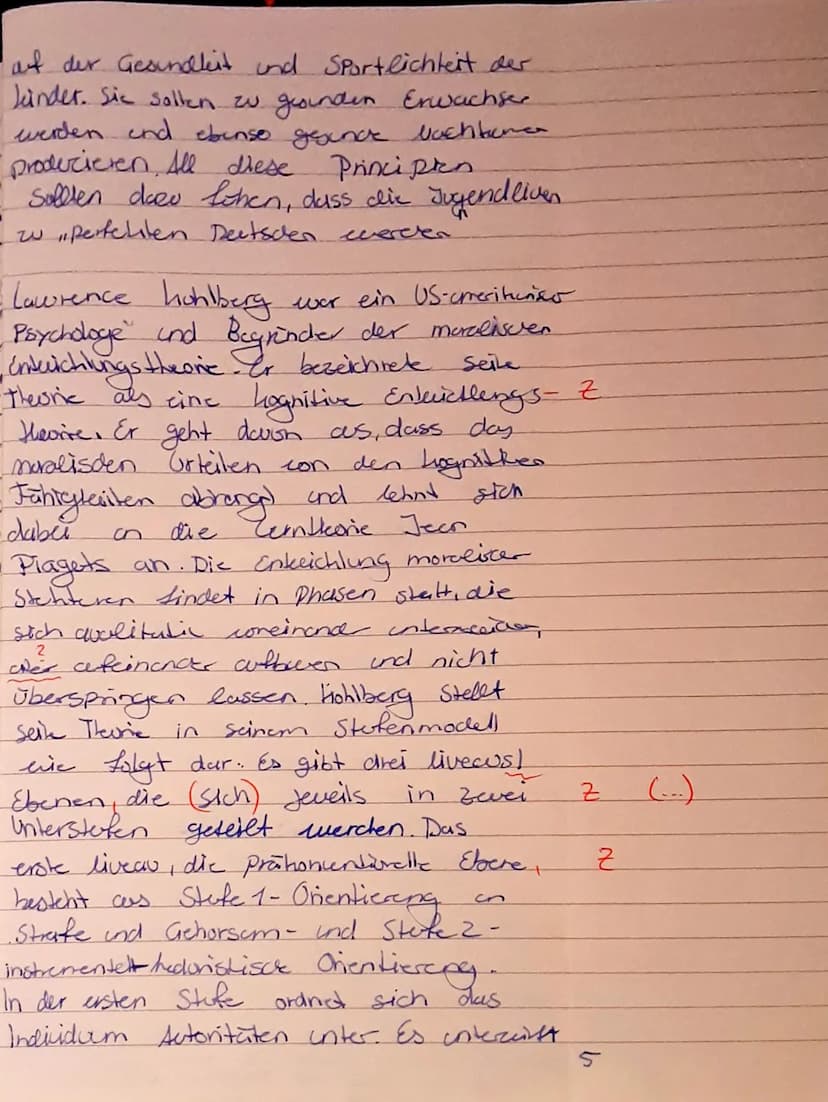 auf der Gesundheit und Sportlichkeit der
Kinder. Sie sollen zu gesunden Erwachsen
werden und ebenso gesunde Nachkommen
producieren. All diese Principien
Sollten dazu führen, dass die Jugendlichen
zu „perfekten Deutschen werden"
Lawrence Kohlberg war ein US-amerikanischer
Psychologe und Begründer der moralischen
Entwicklungstheorie. Er bezeichnete seine
Theorie als eine kognitive Entwicklungs- Z
theorie. Er geht davon aus, dass das
moralischen Urteilen von den kognitiven
Fähigkeiten abhängt und lehnt sich
dabei an die Lerntheorie Jean
Piagets an. Die Entwicklung moralischer
Strukturen findet in Phasen statt, die
sich qualitativ voneinander unterscheiden,
? aufeinander aufbauen und nicht
Überspringen lassen. Kohlberg Stellt
seine Theorie in seinem Stufenmodell
wie folgt dar: Es gibt drei Niveaus/
Ebenen, die (sich) jeweils in zwei Z (...)
Unterstufen geteilt werden. Das
erste Niveau, die Präkonventionelle Ebene, Z
besteht aus Stufe 1 - Orientierung an
Strafe und Gehorsam - und Stufe 2 -
instrumentell-hedonistische Orientierung.
In der ersten Stufe ordnet sich das
Individuum Autoritäten unter. Es unterwirft
5